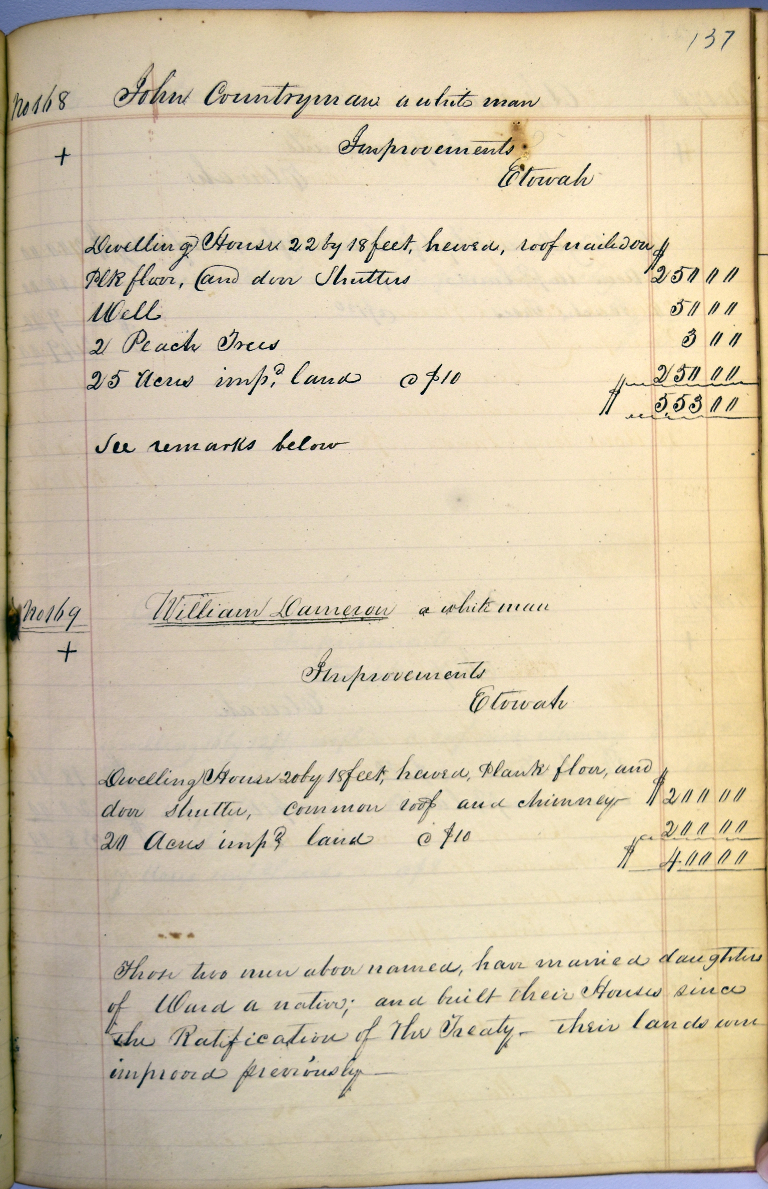 137
No 168 John Countryman a white man
+
Improvements
Etowah
Dwelling House 22 by 18 feet, hewed, roof nailed on $
Plk floor, and door Shutters 250 00
Well 50 00
2 Peach Trees 3 00
25 Acres impd. land @ $10 250 00
$ 553 00
See remarks below
No 169 William Dameron a white man
+
Improvements
Etowah
Dwelling House 20 by 18 feet, hewed, Plank floor, and
door shutter, common roof and chimney $ 200 00
20 Acres impd. land @ $10 200 00
$ 400 00
Those two men above named, have married daughters
of Ward a native; and built their Houses since
the Ratification of the Treaty - their lands were
improved previously -